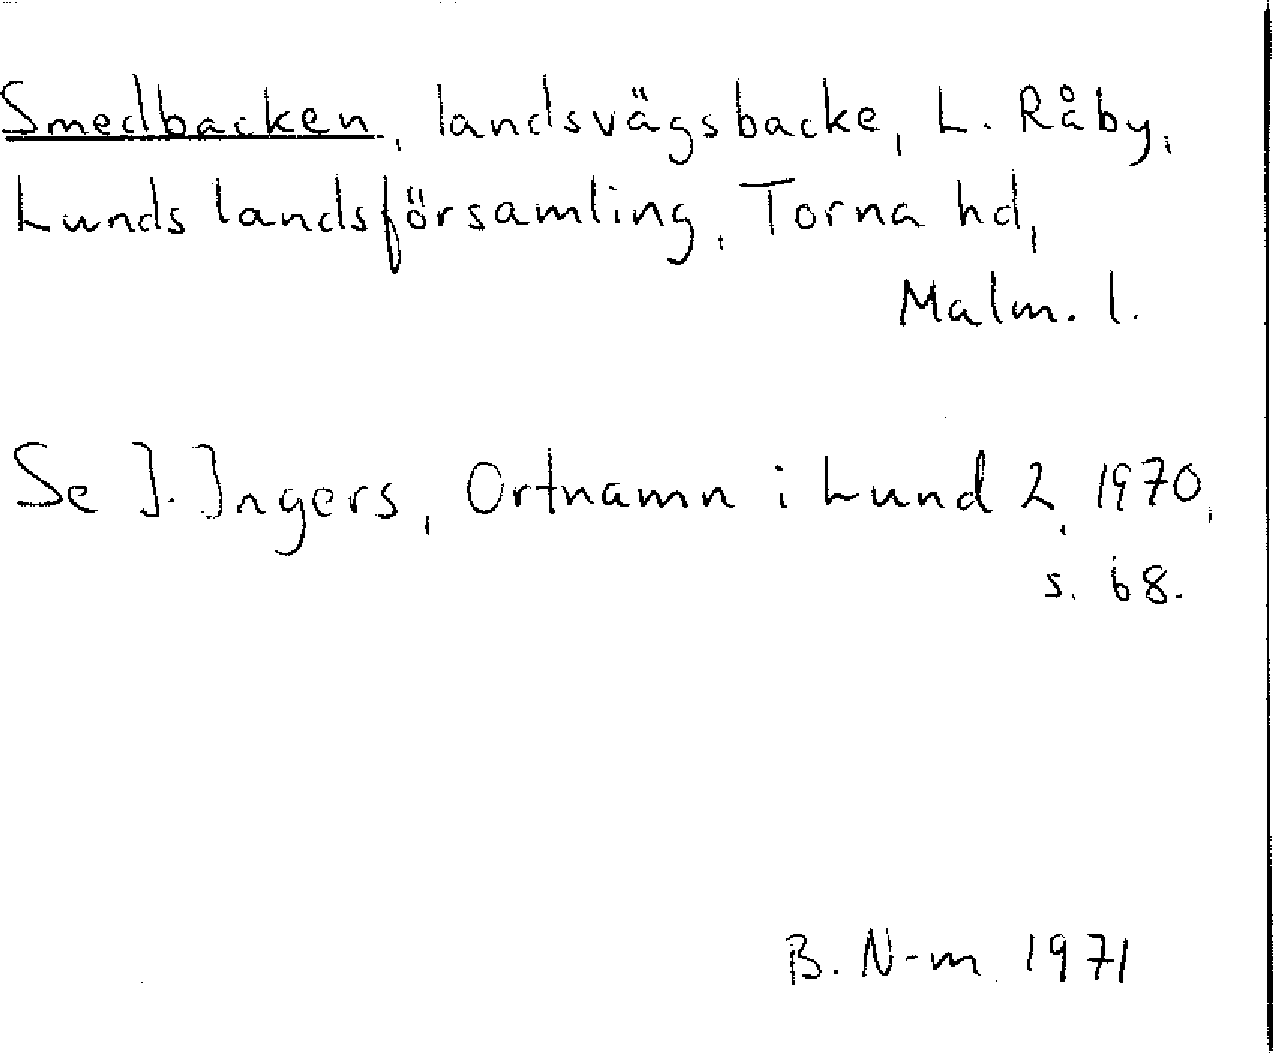 Smedbacken, landsvägsbacke, L. Råby,
Lunds landsförsamling, Torna hd,
Malm. l.
Se I. Ingers, Ortnamn i Lund 2, 1970,
s. 68.
B. N-m 1971